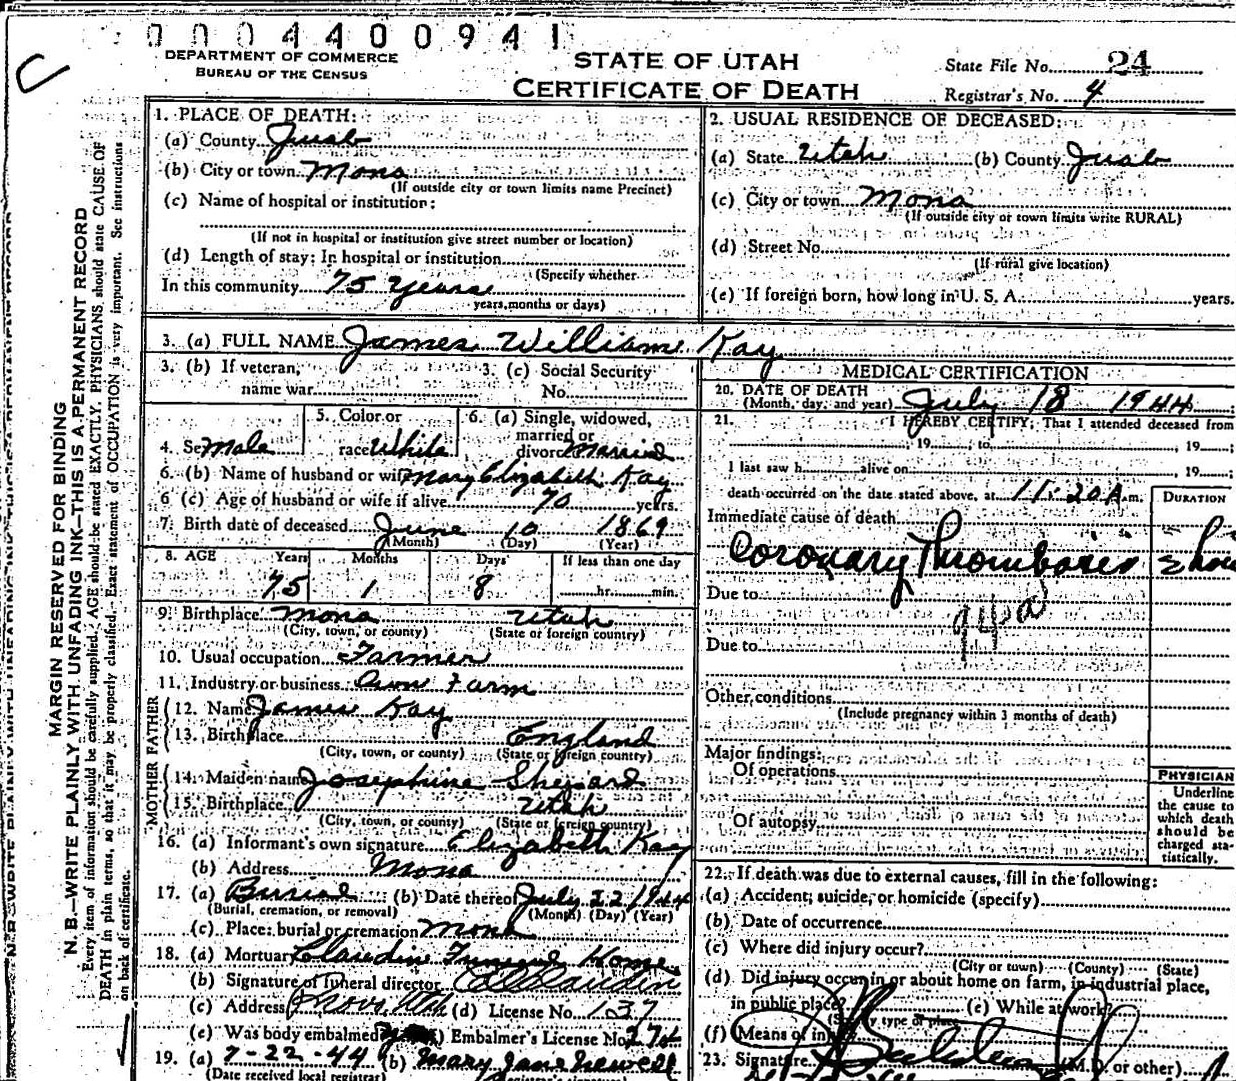 0004400941
DEPARTMENT OF COMMERCE
BUREAU OF THE CENSUS
STATE OF UTAH
CERTIFICATE OF DEATH
State File No. 24
Registrar's No. 4
MARGIN RESERVED FOR BINDING
N. B.—WRITE PLAINLY WITH UNFADING INK—THIS IS A PERMANENT RECORD
Every item of information should be carefully supplied. AGE should be stated EXACTLY. PHYSICIANS should state CAUSE OF
DEATH in plain terms, so that it may be properly classified. Exact statement of OCCUPATION is very important. See instructions
on back of certificate.
1. PLACE OF DEATH:
(a) County Juab
(b) City or town Mona
(If outside city or town limits name Precinct)
(c) Name of hospital or institution:
(If not in hospital or institution give street number or location)
(d) Length of stay: In hospital or institution
(Specify whether
In this community 75 years
years, months or days)
2. USUAL RESIDENCE OF DECEASED:
(a) State Utah (b) County Juab
(c) City or town Mona
(If outside city or town limits write RURAL)
(d) Street No.
(If rural give location)
(e) If foreign born, how long in U. S. A. years.
3. (a) FULL NAME James William Kay
3. (b) If veteran, name war
3. (c) Social Security No.
4. Sex Male
5. Color or race White
6. (a) Single, widowed, married or divorced Married
6. (b) Name of husband or wife Mary Elizabeth Kay
6 (c) Age of husband or wife if alive 70 years.
7. Birth date of deceased June 10 1869
(Month) (Day) (Year)
8. AGE Years Months Days If less than one day
75 1 8 hr. min.
9. Birthplace Mona Utah
(City, town, or county) (State or foreign country)
10. Usual occupation Farmer
11. Industry or business Own Farm
FATHER
12. Name James Kay
13. Birthplace England
(City, town, or county) (State or foreign country)
MOTHER
14. Maiden name Josephine Shepard
15. Birthplace Utah
(City, town, or county) (State or foreign country)
16. (a) Informant's own signature Elizabeth Kay
(b) Address Mona
17. (a) Burial (b) Date thereof July 22 1944
(Burial, cremation, or removal) (Month) (Day) (Year)
(c) Place: burial or cremation Mona
18. (a) Mortuary Claudin Funeral Home
(b) Signature of funeral director
(c) Address Provo, Utah (d) License No. 137
(e) Was body embalmed Embalmer's License No. 274
19. (a) 7-22-44 (b) Mary Jane Newell
(Date received local registrar)
MEDICAL CERTIFICATION
20. DATE OF DEATH
(Month, day, and year) July 18 1944
21. I HEREBY CERTIFY: That I attended deceased from
19 to 19
I last saw h alive on 19
death occurred on the date stated above, at 11:20 A.m.
DURATION
Immediate cause of death
Coronary Thrombosis
Due to
94a
Due to
Other conditions
(Include pregnancy within 3 months of death)
Major findings:
Of operations
Of autopsy
PHYSICIAN
Underline
the cause to
which death
should be
charged sta-
tistically.
22. If death was due to external causes, fill in the following:
(a) Accident, suicide, or homicide (specify)
(b) Date of occurrence
(c) Where did injury occur?
(City or town) (County) (State)
(d) Did injury occur in or about home on farm, in industrial place,
in public place? (e) While at work?
(Specify type of place)
(f) Means of injury
23. Signature (M.D. or other)